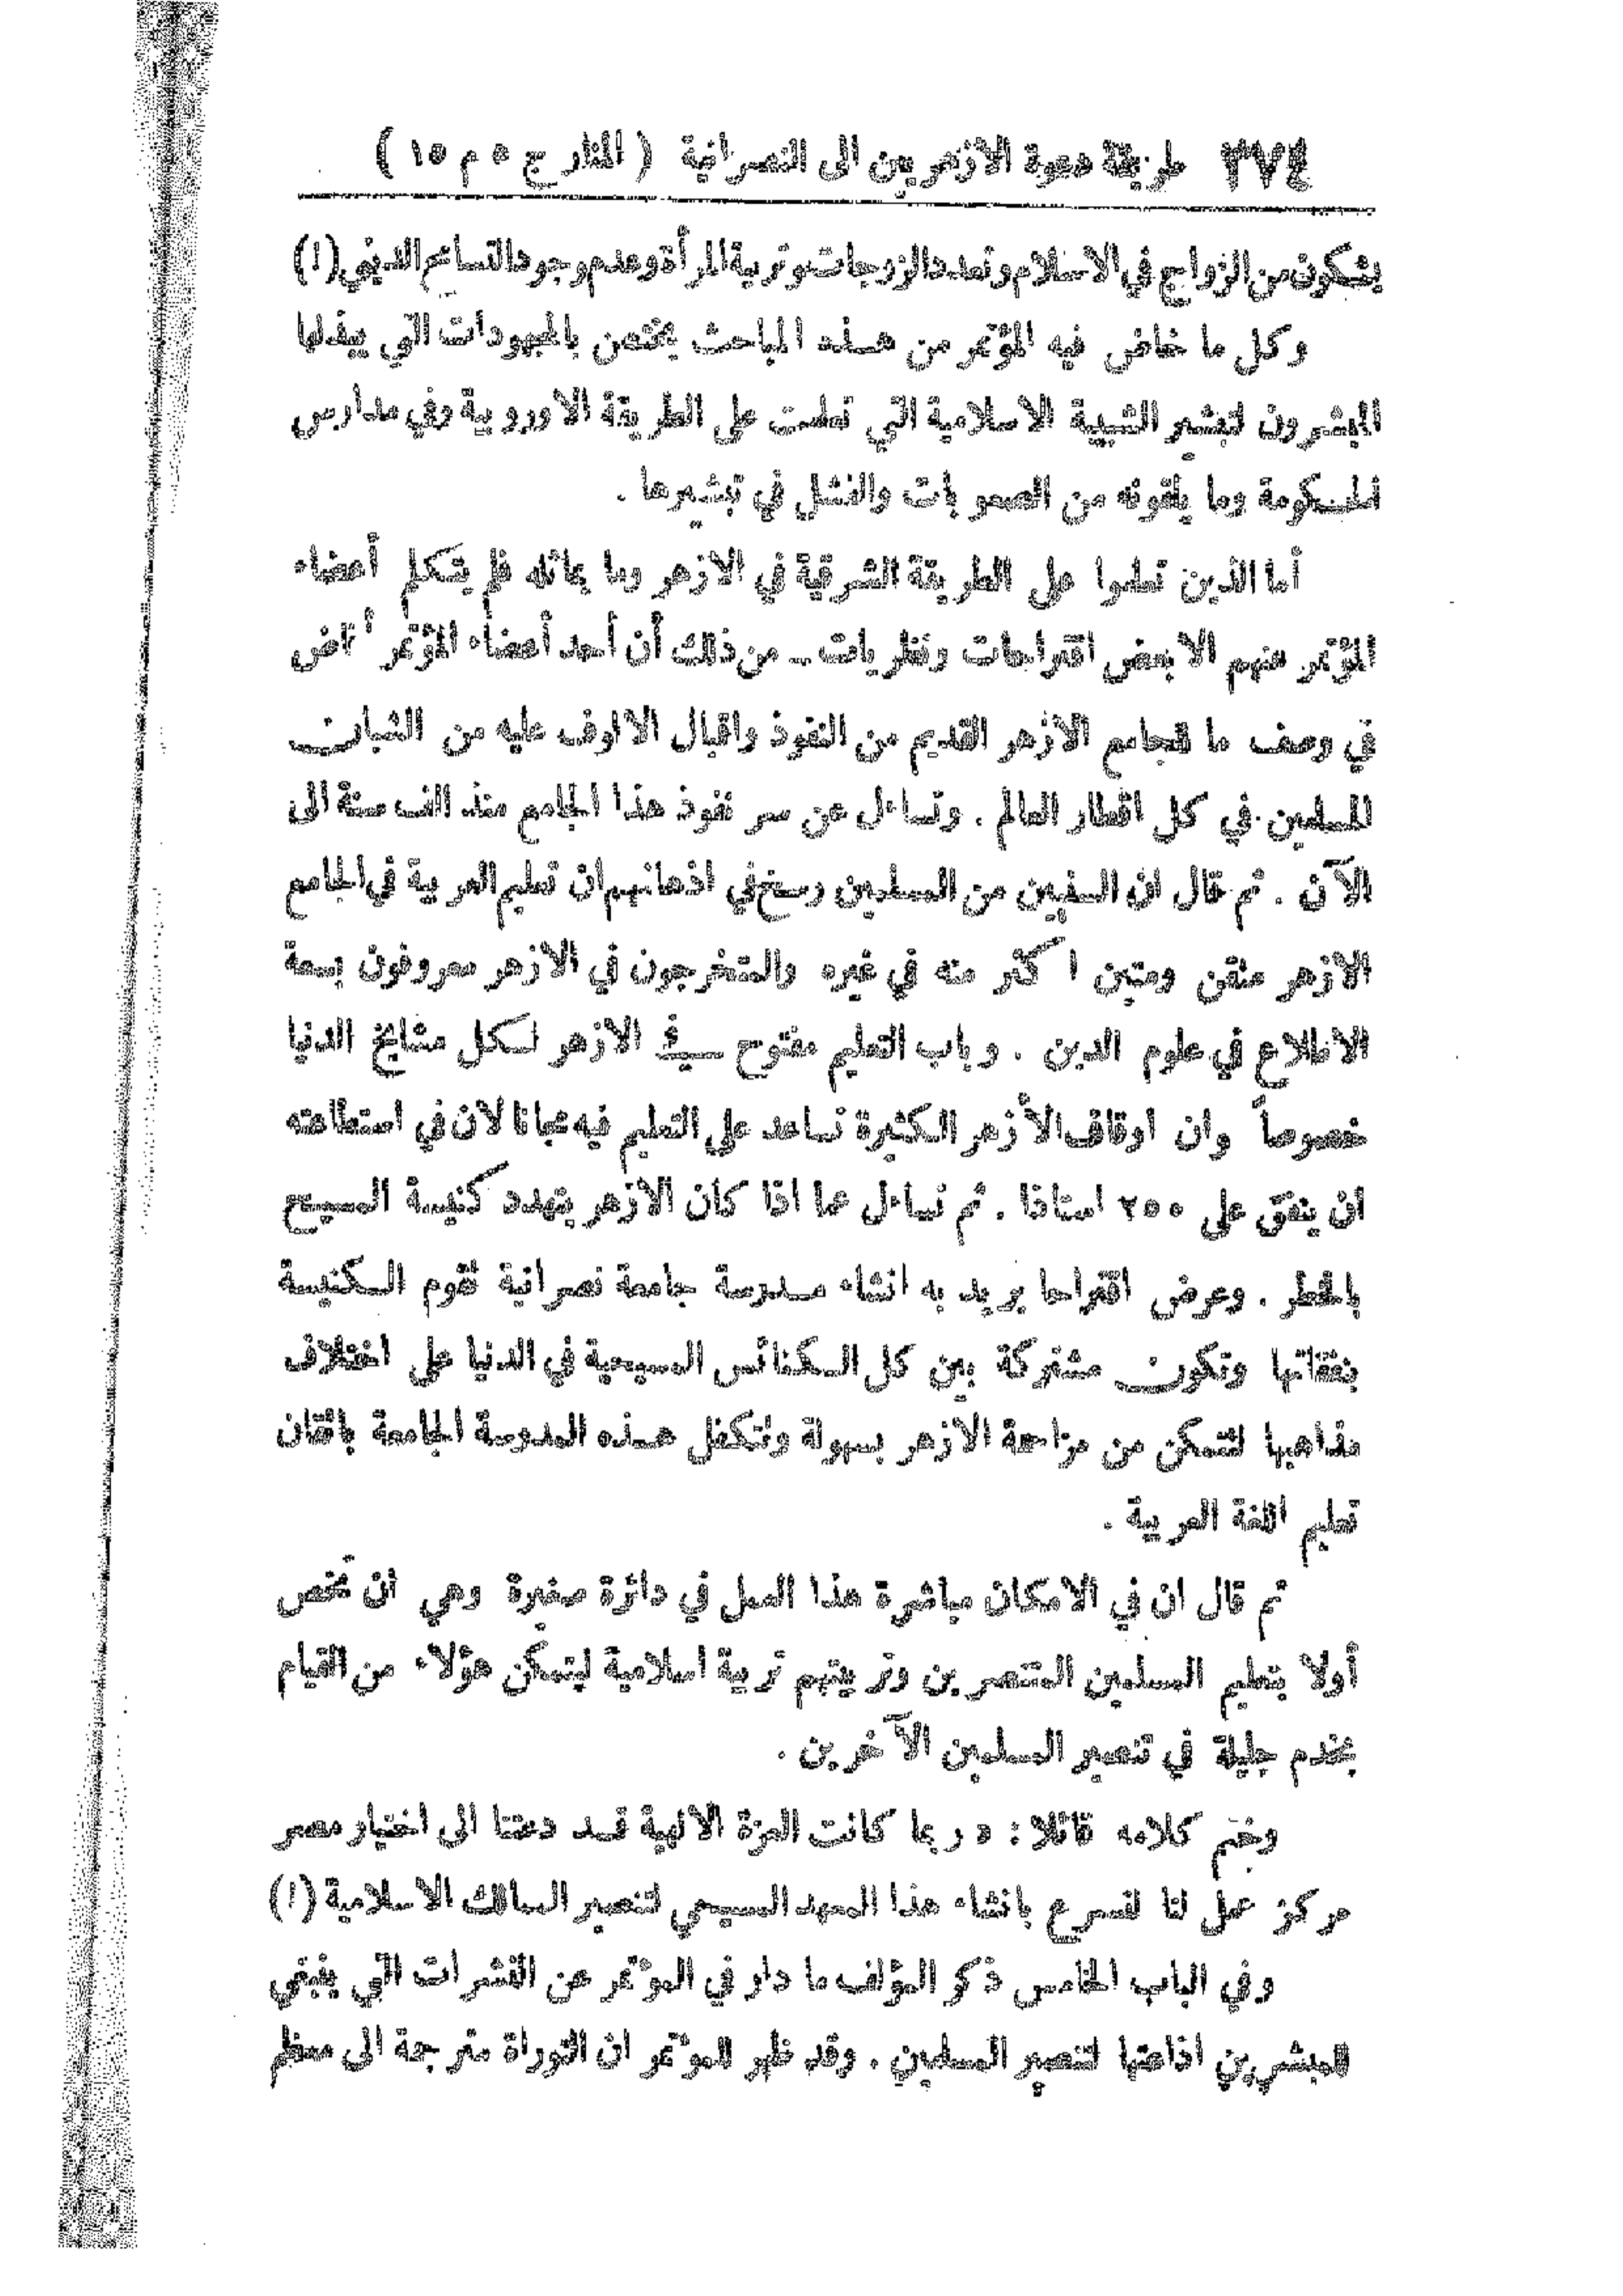 ٣٧٤ طريقة دعوة الازهريين الى النصرانية ( المنار ج ٥ م ١٥ )
يشكون من الزواج في الاسلام وتعدد الزوجات وتربية المرأة وعدم وجود التسامح الديني (!)
وكل ما خاض فيه المؤتمر من هـذه المباحث يختص بالمجهودات التي يبذلها
المبشرون لتبشير الشبيبة الاسلامية التي تعلمت على الطريقة الاوروبية وفي مدارس
الحكومة وما يلقونه من الصعوبات والفشل في تبشيرها .
أما الذين تعلموا على الطريقة الشرقية في الازهر وما يماثله فلم يتكلم أعضاء
المؤتمر عنهم الا بعض اقتراحات ونظريات ـ من ذلك أن أحد أعضاء المؤتمر أفاض
في وصف ما للجامع الأزهر القديم من النفوذ واقبال الالوف عليه من الشبان
المسلمين في كل اقطار العالم . وتساءل عن سر نفوذ هذا الجامع منذ الف سنة الى
الآن . ثم قال ان السنيين من المسلمين رسخ في اذهانهم ان تعليم العربية في الجامع
الازهر متقن ومتين اكثر منه في غيره والمتخرجون في الازهر معروفون بسعة
الاطلاع في علوم الدين . وباب التعليم مفتوح في الازهر لكل مشايخ الدنيا
خصوصاً وان اوقاف الأزهر الكثيرة تساعد على التعليم فيه مجانا لان في استطاعته
ان ينفق على ٢٥٠ استاذا . ثم تساءل عما اذا كان الازهر يتهدد كنيسة المسيح
بالخطر . وعرض اقتراحا يريد به انشاء مدرسة جامعة نصرانية تقوم الكنيسة
بنفقاتها وتكون مشتركة بين كل الكنائس المسيحية في الدنيا على اختلاف
مذاهبها لتتمكن من مزاحمة الازهر بسهولة وتتكفل هـذه المدرسة الجامعة باتقان
تعليم اللغة العربية .
ثم قال ان في الامكان مباشرة هذا العمل في دائرة صغيرة وهي أن تختص
أولا بتعليم المسلمين المتنصرين وتربيتهم تربية اسلامية ليتمكن هؤلاء من القيام
بخدم جليلة في تنصير المسلمين الآخرين .
وختم كلامه قائلا : « ربما كانت العزة الآلهية قـد دعتنا الى اختيار مصر
مركز عمل لنا لنسرع بانشاء هذا المعهد المسيحي لتنصير الممالك الاسلامية (!)
وفي الباب الخامس ذكر المؤلف ما دار في المؤتمر عن النشرات التي ينبغي
للمبشرين اذاعتها لتنصير المسلمين . وقد ظهر للمؤتمر ان التوراة مترجمة الى معظم